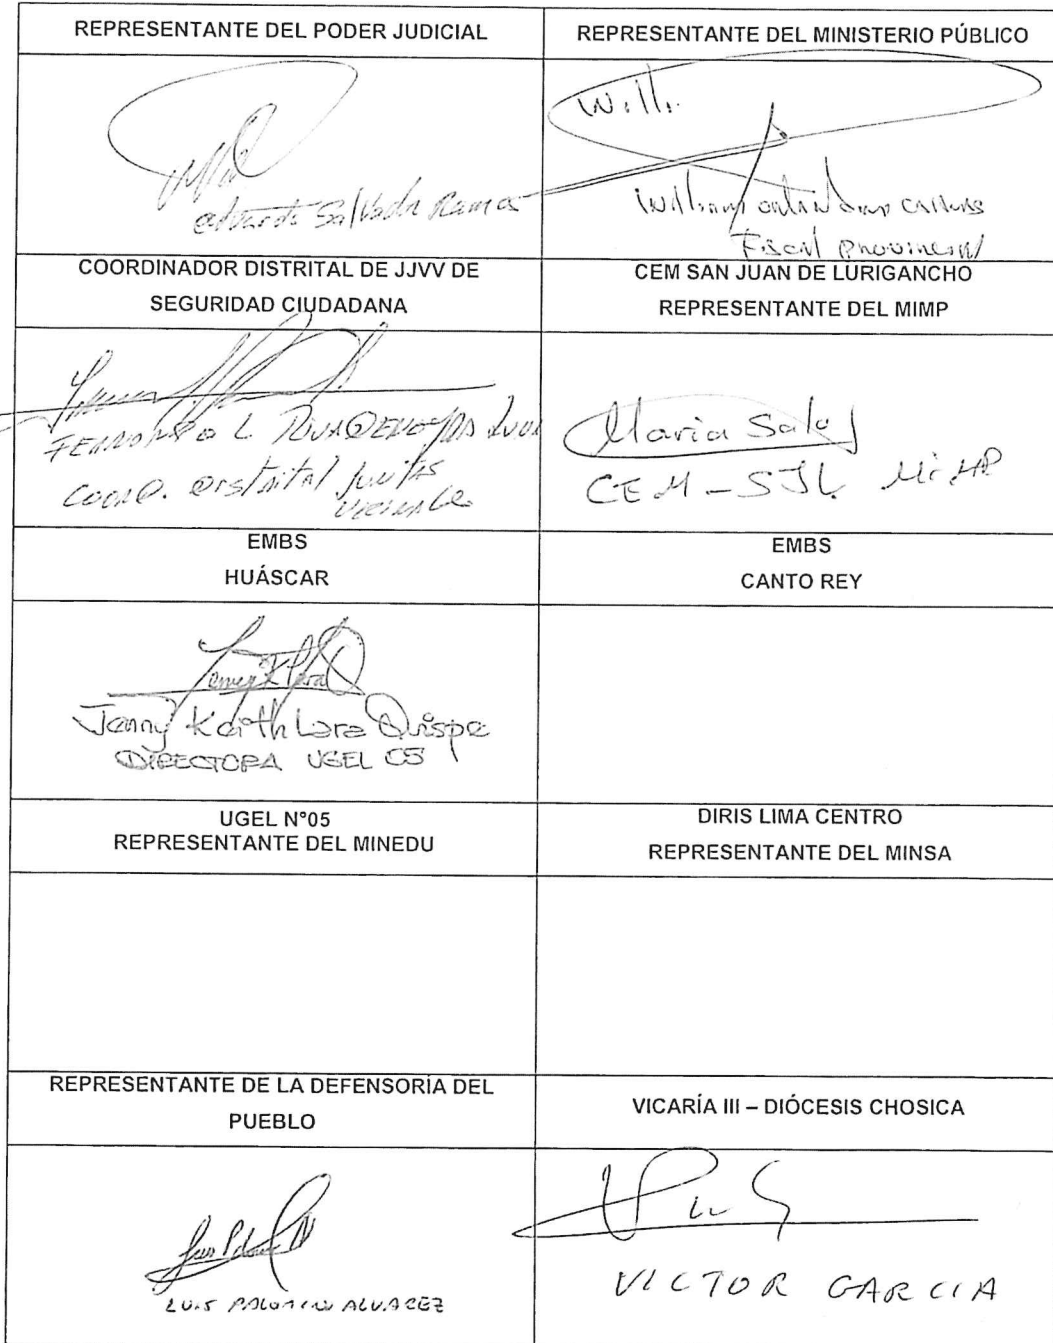 REPRESENTANTE DEL PODER JUDICIAL
REPRESENTANTE DEL MINISTERIO PÚBLICO
Willi.
Eduardo Salvador Ramos
William
Fiscal Provincial
COORDINADOR DISTRITAL DE JJVV DE
SEGURIDAD CIUDADANA
CEM SAN JUAN DE LURIGANCHO
REPRESENTANTE DEL MIMP
L.
COORD. Distrital Juntas
Vecinales
Maria
CEM - SJL MiMP
EMBS
HUÁSCAR
EMBS
CANTO REY
Jenny Keith Lara Quispe
DIRECTORA UGEL 05
UGEL N°05
REPRESENTANTE DEL MINEDU
DIRIS LIMA CENTRO
REPRESENTANTE DEL MINSA
REPRESENTANTE DE LA DEFENSORÍA DEL
PUEBLO
VICARÍA III – DIÓCESIS CHOSICA
LUIS PALOMINO ALVAREZ
VICTOR GARCIA